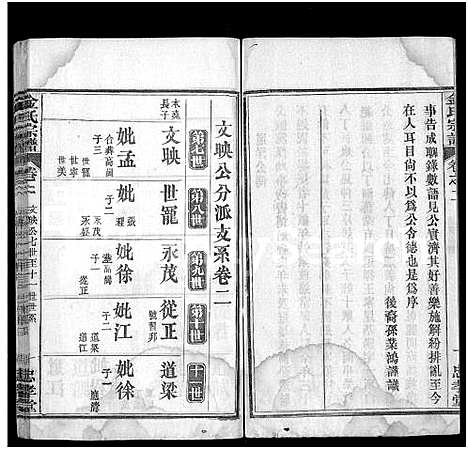 金氏宗譜
卷之二
事告成聊錄數語見公實濟其好善樂施解紛排亂至今
人耳目尚不以為公令德也是為序
後裔孫業鴻謹識
忠孝堂
文映公分派支系卷二
第七世
第八世
第九世
第十世
十一世
木菀
長子
文映
妣孟
合葬高崗
子三
世寵
世寧
世美
世寵
妣張
子二
永茂
永茂
妣徐
子一
從正
從正
妣江
子二
道梁
道江
道梁
妣徐
子一
金氏宗譜
卷之二
文映公七世至十一世世系
忠孝堂